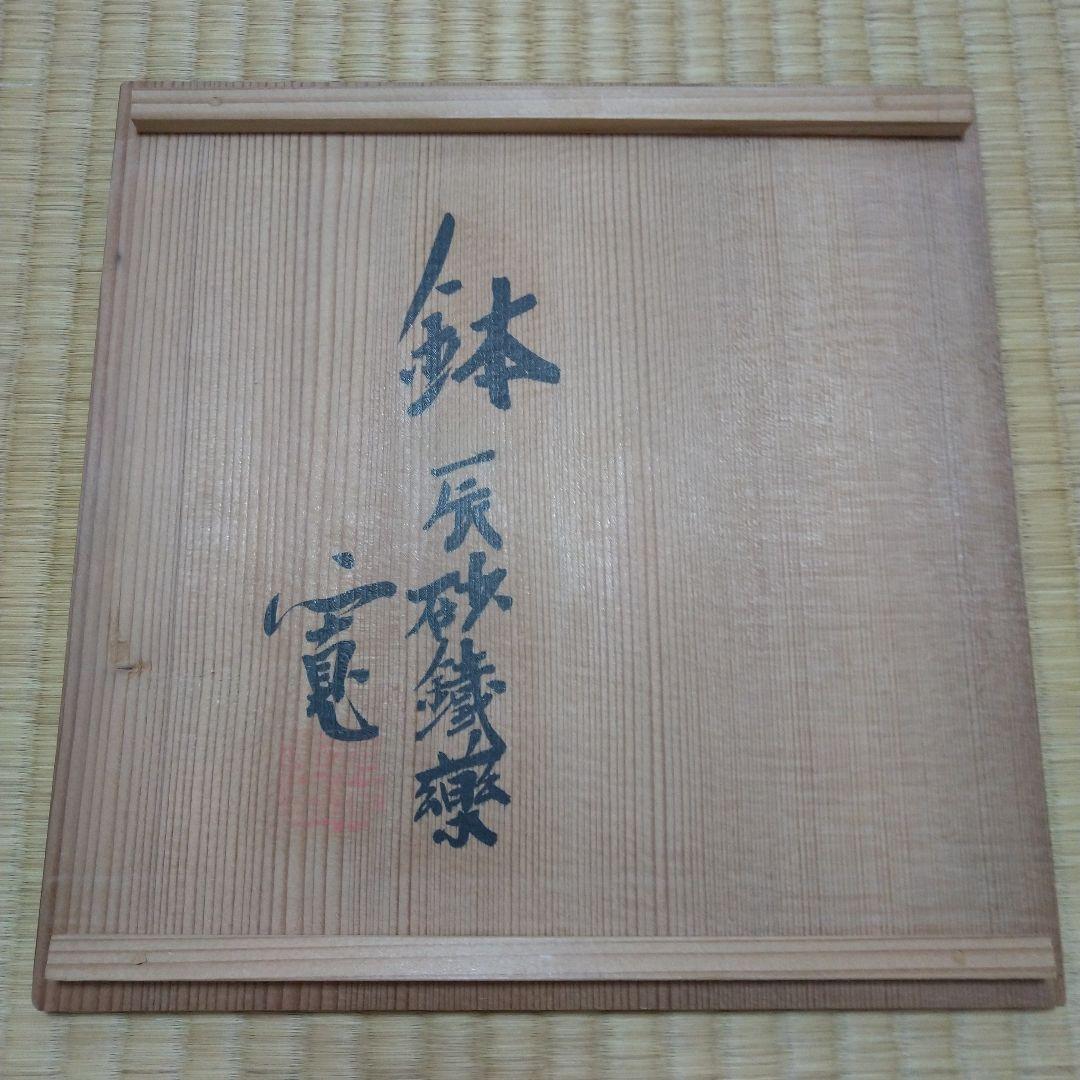 鉢 辰砂鐵藥
寛